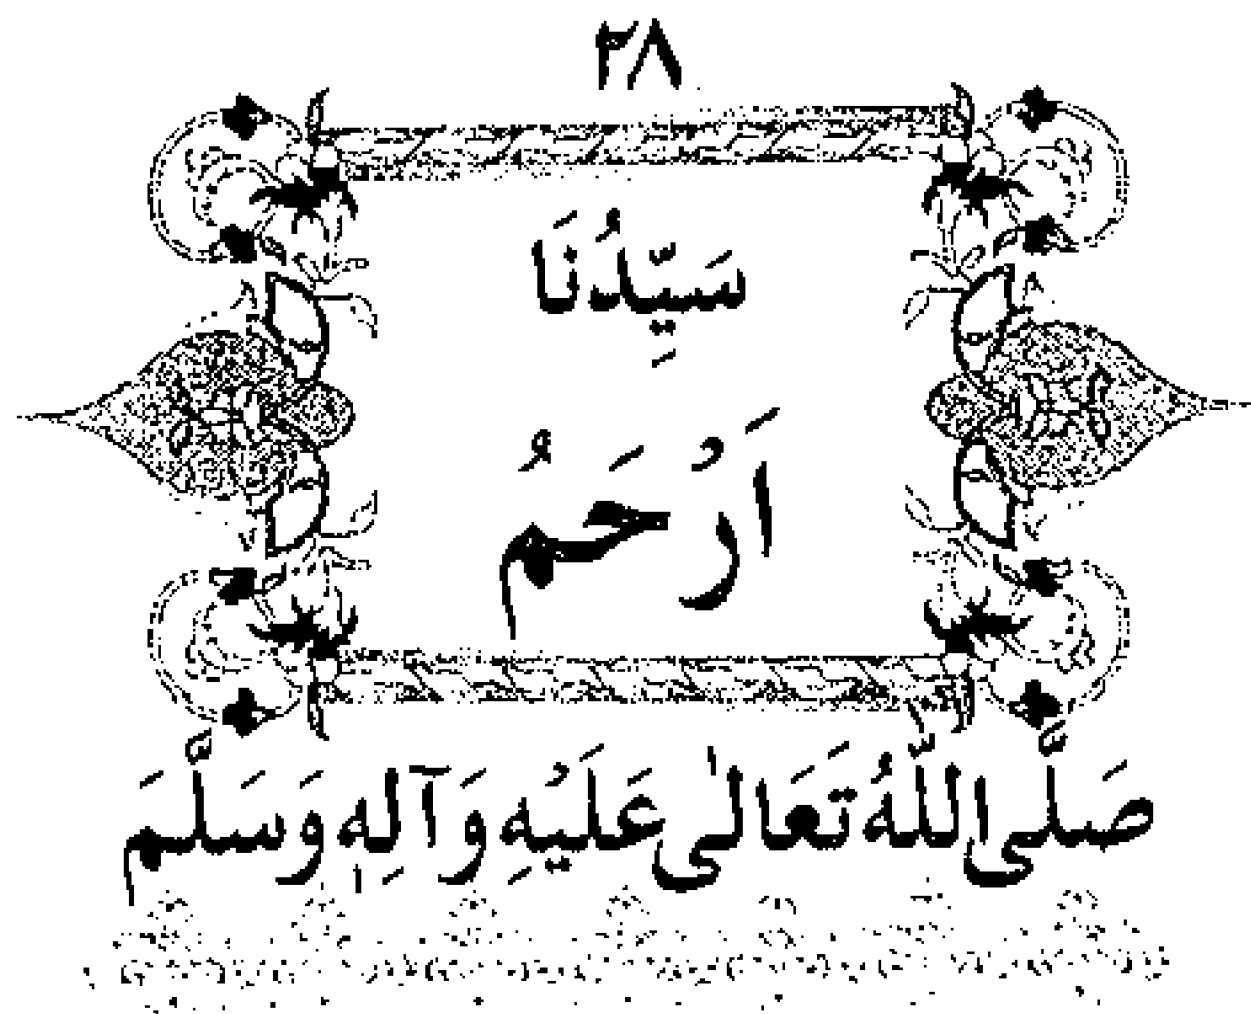 ٢٨
سَيِّدُنَا
اَرْحَمُ
صَلَّى اللّٰهُ تَعَالٰى عَلَيْهِ وَآلِهٖ وَسَلَّمَ